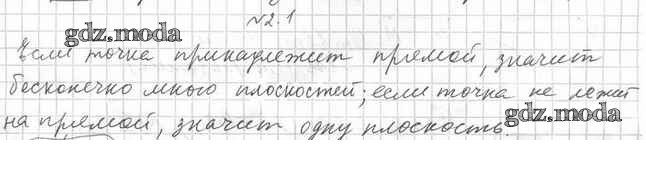 №2.1
gdz.moda
Если точка принадлежит прямой, значит
бесконечно много плоскостей; если точка не лежит
gdz.moda
на прямой, значит одну плоскость.